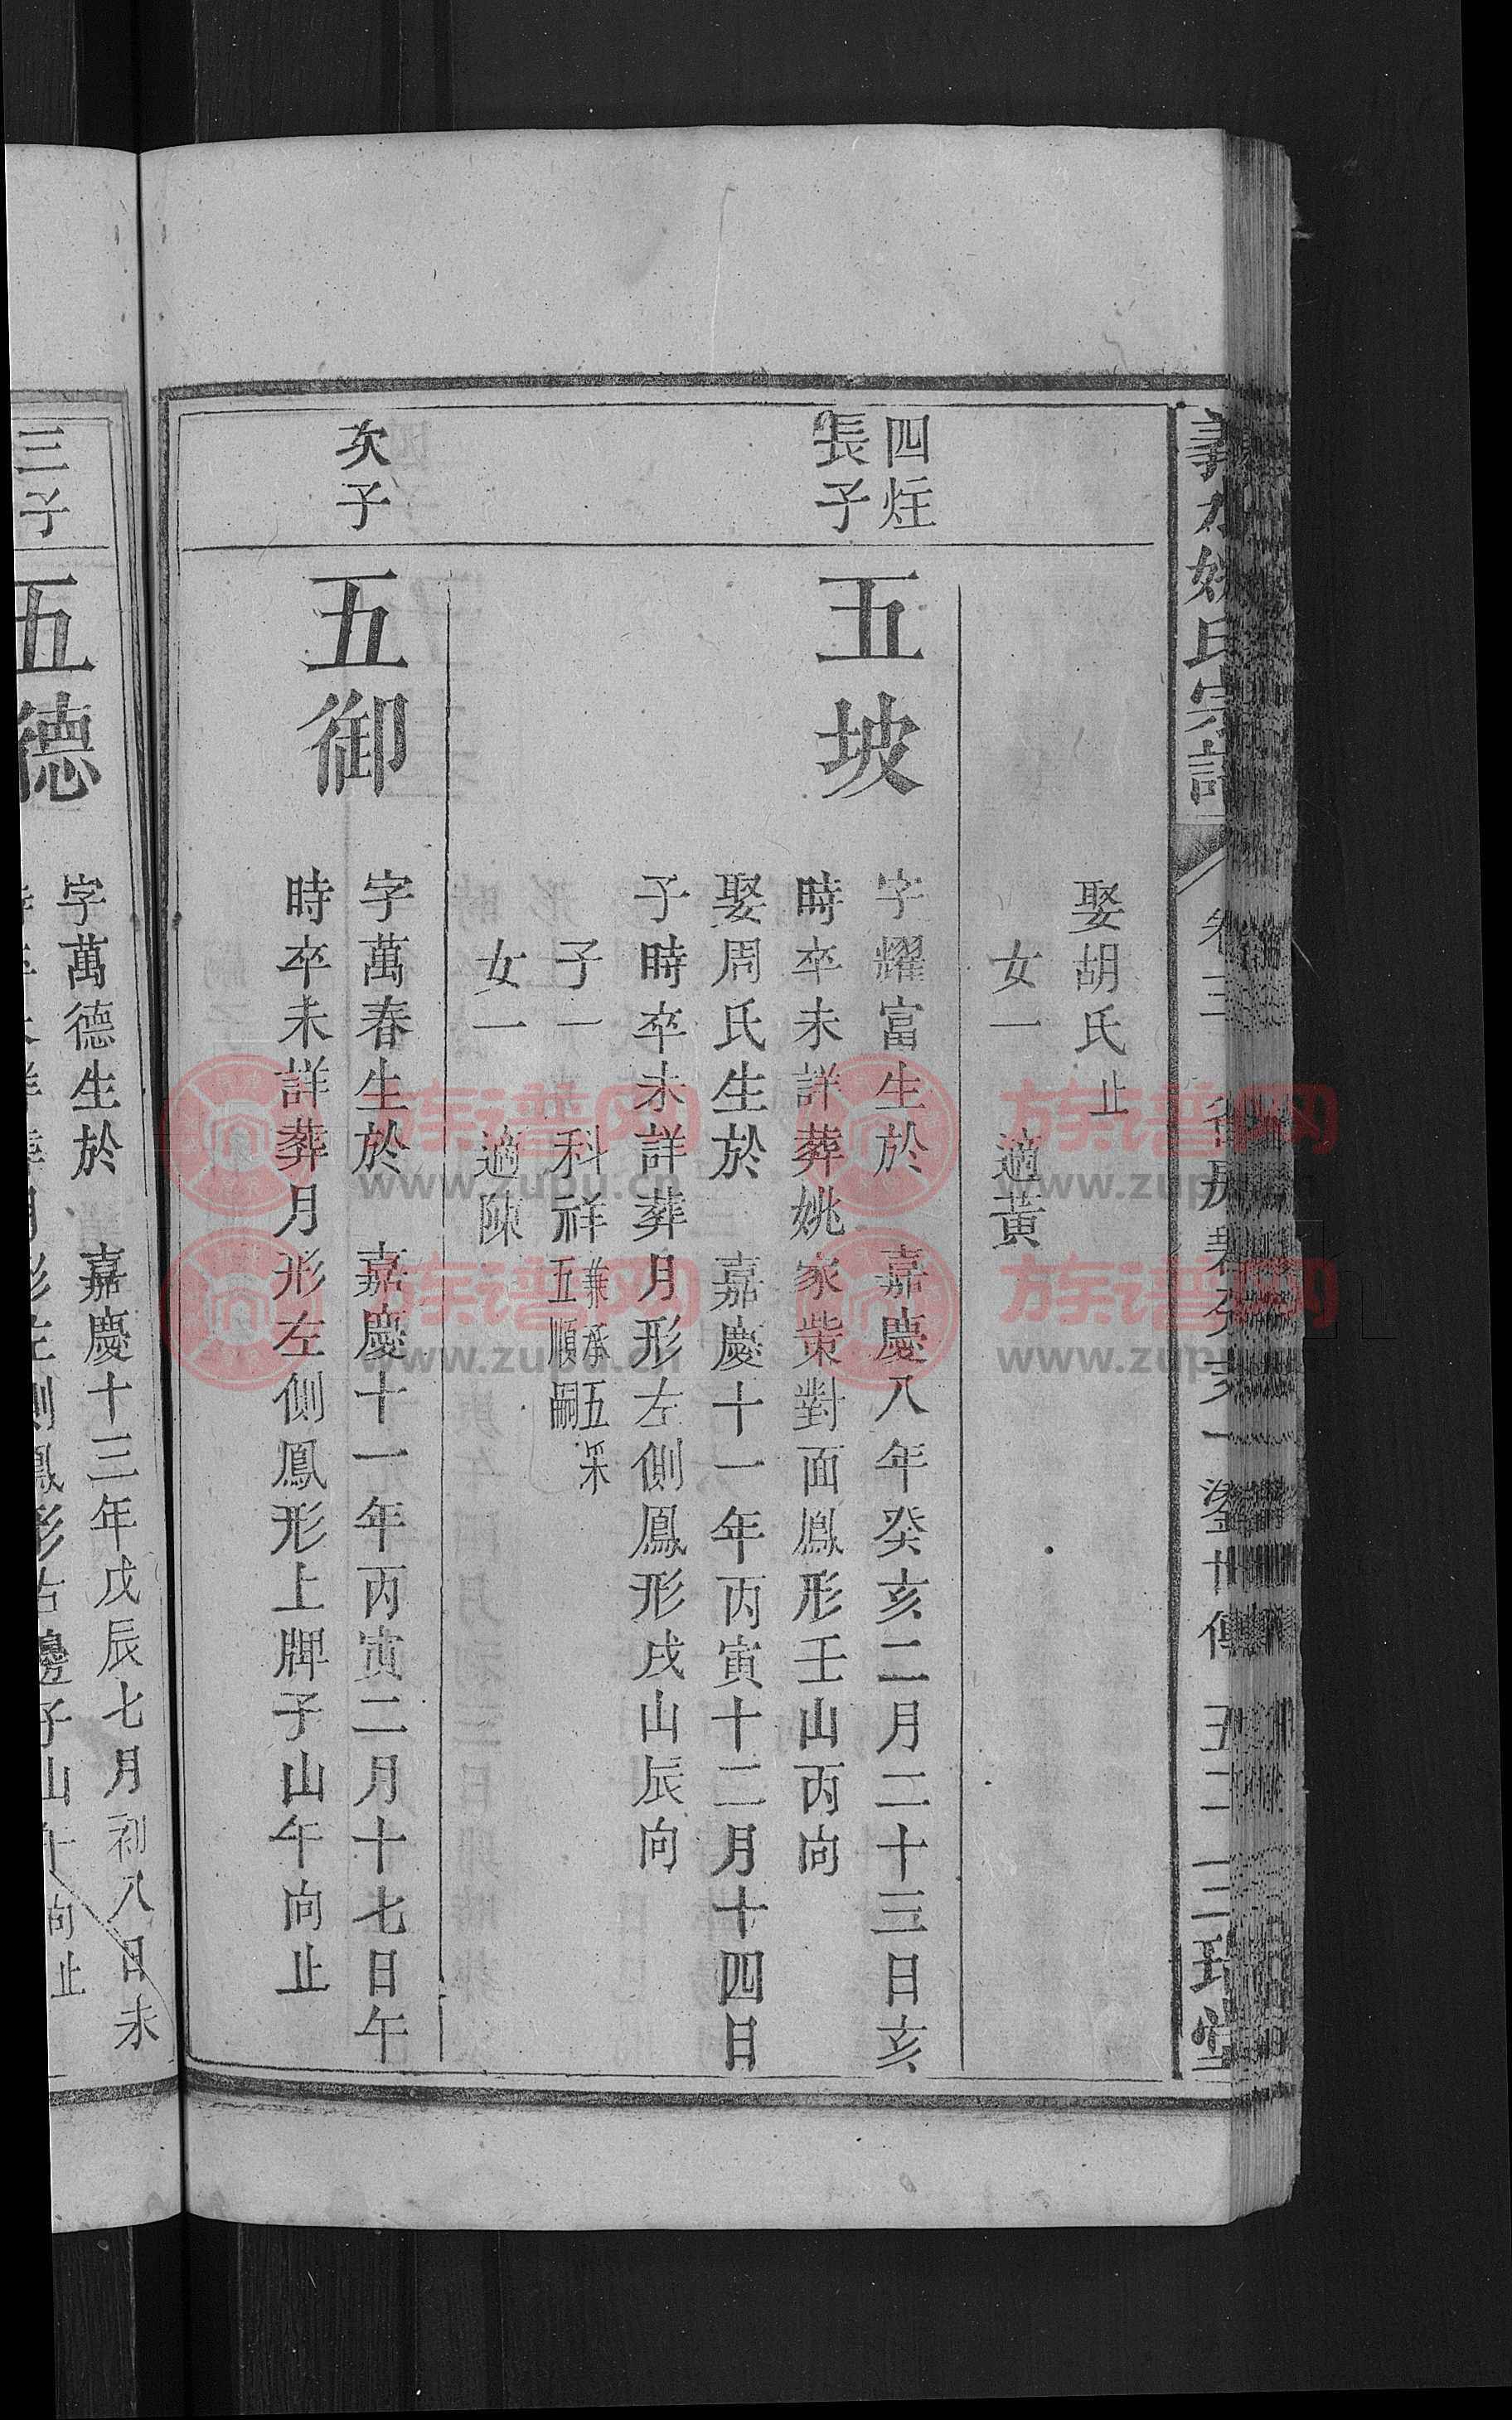 姚氏宗譜
娶胡氏止
女一 適黃
四炷
長子
五坡
字耀富生於 嘉慶八年癸亥二月二十三日亥
時卒未詳葬姚家柴對面鳳形壬山丙向
娶周氏生於 嘉慶十一年丙寅十二月十四日
子時卒未詳葬月形左側鳳形戌山辰向
子一 科祥 兼承五采
五順嗣
女一 適陳
次子
五御
字萬春生於 嘉慶十一年丙寅二月十七日午
時卒未詳葬月形左側鳳形上牌子山午向止
三子
五德
字萬德生於 嘉慶十三年戊辰七月初八日未
族谱网
www.zupu.cn
族谱网
www.zupu.cn
族谱网
www.zupu.cn
族谱网
www.zupu.cn